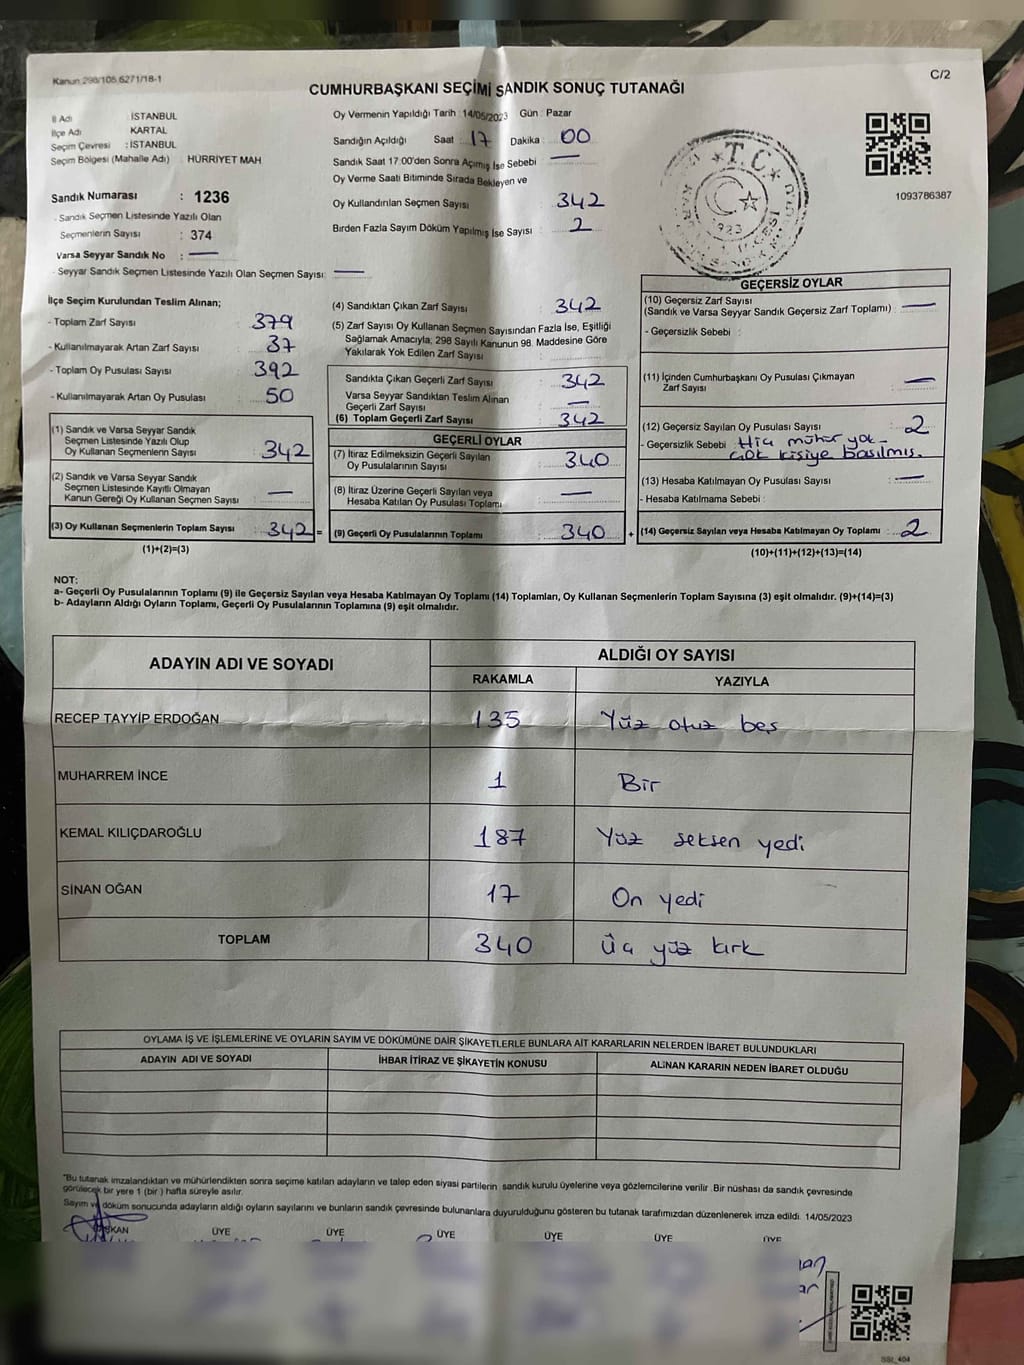 Kanun 298/105,6271/18-1
C/2
CUMHURBAŞKANI SEÇİMİ SANDIK SONUÇ TUTANAĞI
İl Adı : İSTANBUL
İlçe Adı KARTAL
Seçim Çevresi : İSTANBUL
Seçim Bölgesi (Mahalle Adı) : HÜRRİYET MAH
Sandık Numarası : 1236
- Sandık Seçmen Listesinde Yazılı Olan
Seçmenlerin Sayısı : 374
Varsa Seyyar Sandık No : —
- Seyyar Sandık Seçmen Listesinde Yazılı Olan Seçmen Sayısı: —
Oy Vermenin Yapıldığı Tarih : 14/05/2023 Gün : Pazar
Sandığın Açıldığı Saat : 17 Dakika : 00
Sandık Saat 17:00'den Sonra Açımış İse Sebebi : —
Oy Verme Saati Bitiminde Sırada Bekleyen ve
Oy Kullandırılan Seçmen Sayısı 342
Birden Fazla Sayım Döküm Yapılmış İse Sayısı : 2
T.C.
1923
1093786387
İlçe Seçim Kurulundan Teslim Alınan;
- Toplam Zarf Sayısı : 379
- Kullanılmayarak Artan Zarf Sayısı : 37
- Toplam Oy Pusulası Sayısı : 392
- Kullanılmayarak Artan Oy Pusulası : 50
(1) Sandık ve Varsa Seyyar Sandık
Seçmen Listesinde Yazılı Olup
Oy Kullanan Seçmenlerin Sayısı : 342
(2) Sandık ve Varsa Seyyar Sandık
Seçmen Listesinde Kayıtlı Olmayan
Kanun Gereği Oy Kullanan Seçmen Sayısı : —
(3) Oy Kullanan Seçmenlerin Toplam Sayısı : 342 =
(1)+(2)=(3)
(4) Sandıktan Çıkan Zarf Sayısı : 342
(5) Zarf Sayısı Oy Kullanan Seçmen Sayısından Fazla İse, Eşitliği
Sağlamak Amacıyla; 298 Sayılı Kanunun 98. Maddesine Göre
Yakılarak Yok Edilen Zarf Sayısı
Sandıkta Çıkan Geçerli Zarf Sayısı : 342
Varsa Seyyar Sandıktan Teslim Alınan
Geçerli Zarf Sayısı : —
(6) Toplam Geçerli Zarf Sayısı : 342
GEÇERLİ OYLAR
(7) İtiraz Edilmeksizin Geçerli Sayılan
Oy Pusulalarının Sayısı : 340
(8) İtiraz Üzerine Geçerli Sayılan veya
Hesaba Katılan Oy Pusulası Toplamı : —
(9) Geçerli Oy Pusulalarının Toplamı : 340 +
GEÇERSİZ OYLAR
(10) Geçersiz Zarf Sayısı
(Sandık ve Varsa Seyyar Sandık Geçersiz Zarf Toplamı) : —
- Geçersizlik Sebebi :
(11) İçinden Cumhurbaşkanı Oy Pusulası Çıkmayan
Zarf Sayısı : —
(12) Geçersiz Sayılan Oy Pusulası Sayısı : 2
- Geçersizlik Sebebi : Hiç mühür yok -
çok kişiye basılmış.
(13) Hesaba Katılmayan Oy Pusulası Sayısı : —
- Hesaba Katılmama Sebebi :
(14) Geçersiz Sayılan veya Hesaba Katılmayan Oy Toplamı : 2
(10)+(11)+(12)+(13)=(14)
NOT:
a- Geçerli Oy Pusulalarının Toplamı (9) ile Geçersiz Sayılan veya Hesaba Katılmayan Oy Toplamı (14) Toplamları, Oy Kullanan Seçmenlerin Toplam Sayısına (3) eşit olmalıdır. (9)+(14)=(3)
b- Adayların Aldığı Oyların Toplamı, Geçerli Oy Pusulalarının Toplamına (9) eşit olmalıdır.
ADAYIN ADI VE SOYADI
ALDIĞI OY SAYISI
RAKAMLA YAZIYLA
RECEP TAYYİP ERDOĞAN 135 Yüz otuz beş
MUHARREM İNCE 1 Bir
KEMAL KILIÇDAROĞLU 187 Yüz seksen yedi
SİNAN OĞAN 17 On yedi
TOPLAM 340 Üç yüz kırk
OYLAMA İŞ VE İŞLEMLERİNE VE OYLARIN SAYIM VE DÖKÜMÜNE DAİR ŞİKAYETLERLE BUNLARA AİT KARARLARIN NELERDEN İBARET BULUNDUKLARI
ADAYIN ADI VE SOYADI İHBAR İTİRAZ VE ŞİKAYETİN KONUSU ALINAN KARARIN NEDEN İBARET OLDUĞU
*Bu tutanak imzalandıktan ve mühürlendikten sonra seçime katılan adayların ve talep eden siyasi partilerin sandık kurulu üyelerine veya gözlemcilerine verilir. Bir nüshası da sandık çevresinde
görülecek bir yere 1 (bir) hafta süreyle asılır.
Sayım ve döküm sonucunda adayların aldığı oyların sayılarını ve bunların sandık çevresinde bulunanlara duyurulduğunu gösteren bu tutanak tarafımızdan düzenlenerek imza edildi. 14/05/2023
BAŞKAN ÜYE ÜYE ÜYE ÜYE ÜYE ÜYE